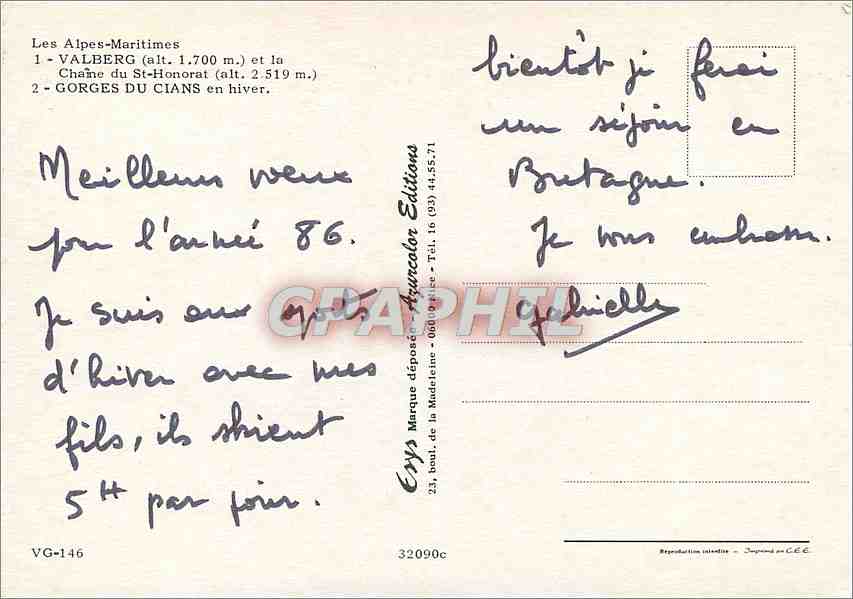 Les Alpes-Maritimes
1 - VALBERG (alt. 1.700 m.) et la
Chaîne du St-Honorat (alt. 2.519 m.)
2 - GORGES DU CIANS en hiver.
Meilleurs voeux
pour l'année 86.
Je suis aux sports
d'hiver avec mes
fils, ils skient
5H par jour.
bientôt je ferai
un séjour en
Bretagne.
Je vous embrasse.
Gabrielle
CPAPHIL
Esys Marque déposée - Azurcolor Editions
23, boul. de la Madeleine - 06000 Nice - Tél. 16 (93) 44.55.71
VG-146
32090c
Reproduction interdite - Imprimé en C.E.E.